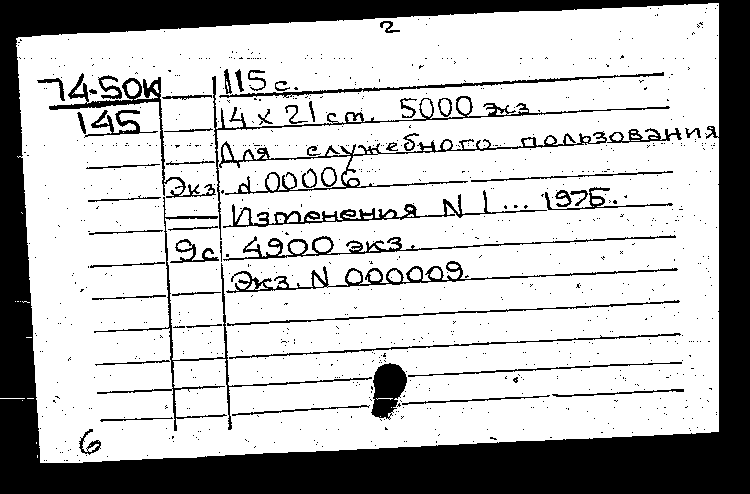 2
74-50к 115 с.
145 14 x 21 cm. 5000 экз.
Для служебного пользования
Экз. d 00006.
— Изменения N 1... 1975.
9 с. 4900 экз.
Экз. N 000009.
6